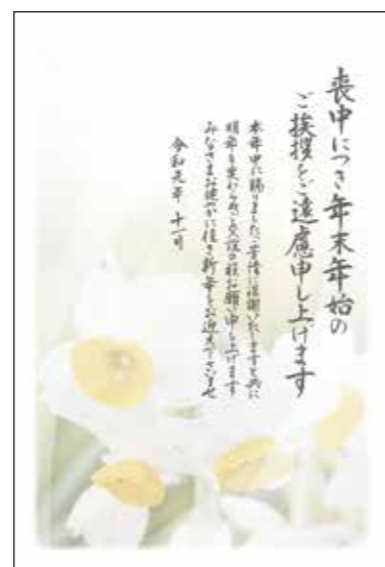 喪中につき年末年始の
ご挨拶をご遠慮申し上げます
本年中に賜りましたご芳情に深謝いたしますと共に
明年も変わらぬご交誼の程お願い申し上げます
みなさまお健やかに佳き新年をお迎え下さいませ
令和元年 十一月